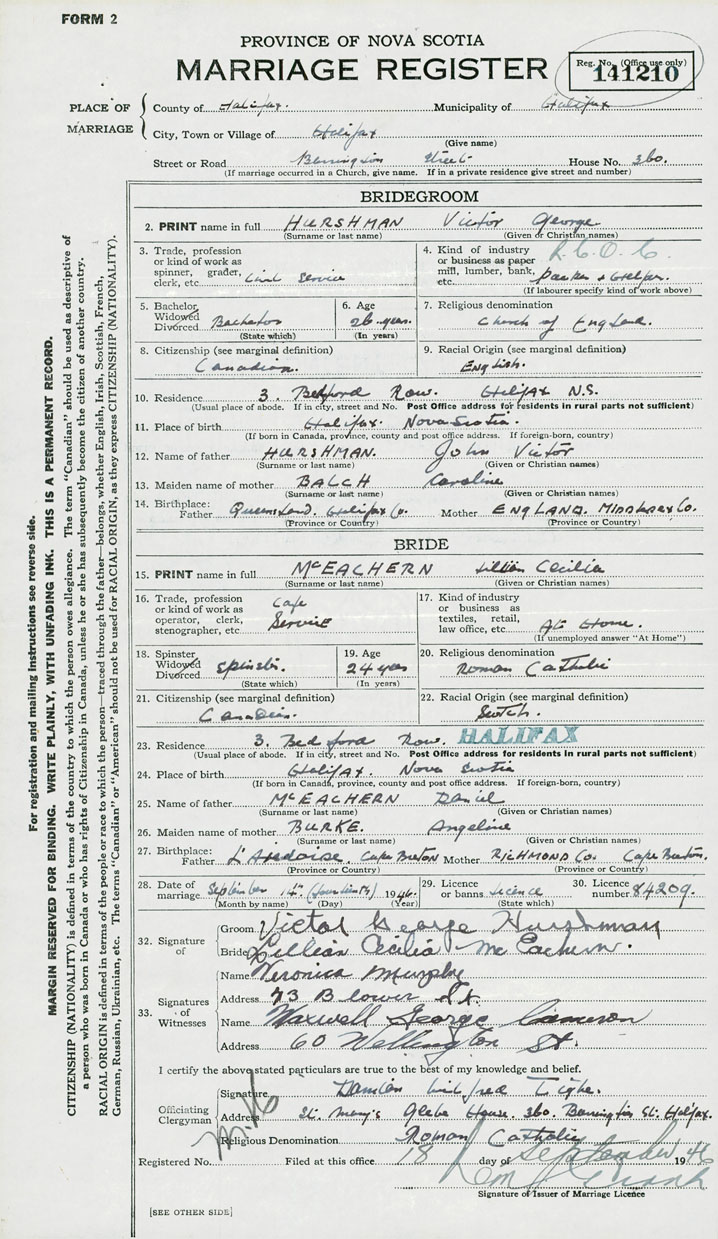 FORM 2
PROVINCE OF NOVA SCOTIA
MARRIAGE REGISTER
Reg. No. (Office use only)
141210
PLACE OF MARRIAGE
County of Halifax. Municipality of Halifax
City, Town or Village of Halifax
(Give name)
Street or Road Barrington Street House No. 360.
(If marriage occurred in a Church, give name. If in a private residence give street and number)
BRIDEGROOM
2. PRINT name in full HURSHMAN Victor George
(Surname or last name) (Given or Christian names)
3. Trade, profession or kind of work as spinner, grader, clerk, etc. Civil Service
4. Kind of industry or business as paper mill, lumber, bank, etc. Packer & Helper.
(If labourer specify kind of work above)
5. Bachelor Widowed Divorced Bachelor
(State which)
6. Age 26 years.
(In years)
7. Religious denomination
Church of England.
8. Citizenship (see marginal definition)
Canadian.
9. Racial Origin (see marginal definition)
English.
10. Residence 3. Bedford Row. Halifax N.S.
(Usual place of abode. If in city, street and No. Post Office address for residents in rural parts not sufficient)
11. Place of birth Halifax. Nova Scotia.
(If born in Canada, province, county and post office address. If foreign-born, country)
12. Name of father HURSHMAN. John Victor
(Surname or last name) (Given or Christian names)
13. Maiden name of mother BALCH Caroline
(Surname or last name) (Given or Christian names)
14. Birthplace: Father Queensland. Halifax Co. Mother ENGLAND. Middlesex Co.
(Province or Country) (Province or Country)
BRIDE
15. PRINT name in full McEACHERN Lillian Cecilia
(Surname or last name) (Given or Christian names)
16. Trade, profession or kind of work as operator, clerk, stenographer, etc. Cafe Service
17. Kind of industry or business as textiles, retail, law office, etc. At Home.
(If unemployed answer "At Home")
18. Spinster Widowed Divorced Spinster.
(State which)
19. Age
24 years
(In years)
20. Religious denomination
Roman Catholic
21. Citizenship (see marginal definition)
Canadian.
22. Racial Origin (see marginal definition)
Scotch.
23. Residence 3. Bedford Row. HALIFAX
(Usual place of abode. If in city, street and No. Post Office address for residents in rural parts not sufficient)
24. Place of birth Halifax. Nova Scotia
(If born in Canada, province, county and post office address. If foreign-born, country)
25. Name of father McEACHERN Daniel
(Surname or last name) (Given or Christian names)
26. Maiden name of mother BURKE. Angeline
(Surname or last name) (Given or Christian names)
27. Birthplace: Father L'Ardoise. Cape Breton Mother RICHMOND Co. Cape Breton.
(Province or Country) (Province or Country)
28. Date of marriage September 14th (fourteenth) 1946.
(Month by name) (Day) (Year)
29. Licence or banns Licence
(State which)
30. Licence number 84209.
32. Signature of
Groom Victor George Hurshman
Bride Lillian Cecilia McEachern.
33. Signatures of Witnesses
Name Veronica Murphy
Address 73 Blower St.
Name Maxwell George Cameron
Address 60 Wellington St.
I certify the above stated particulars are true to the best of my knowledge and belief.
Officiating Clergyman
Signature Damien Wilfred
Address St. Mary's Glebe House. 360. Barrington St. Halifax.
Religious Denomination Roman Catholic
Registered No. Filed at this office 18 day of September 1946
Signature of Issuer of Marriage Licence
[SEE OTHER SIDE]
For registration and mailing instructions see reverse side.
MARGIN RESERVED FOR BINDING. WRITE PLAINLY, WITH UNFADING INK. THIS IS A PERMANENT RECORD.
CITIZENSHIP (NATIONALITY) is defined in terms of the country to which the person owes allegiance. The term "Canadian" should be used as descriptive of
a person who was born in Canada or who has rights of Citizenship in Canada, unless he or she has subsequently become the citizen of another country.
RACIAL ORIGIN is defined in terms of the people or race to which the person—traced through the father—belongs, whether English, Irish, Scottish, French,
German, Russian, Ukrainian, etc. The terms "Canadian" or "American" should not be used for RACIAL ORIGIN, as they express CITIZENSHIP (NATIONALITY).